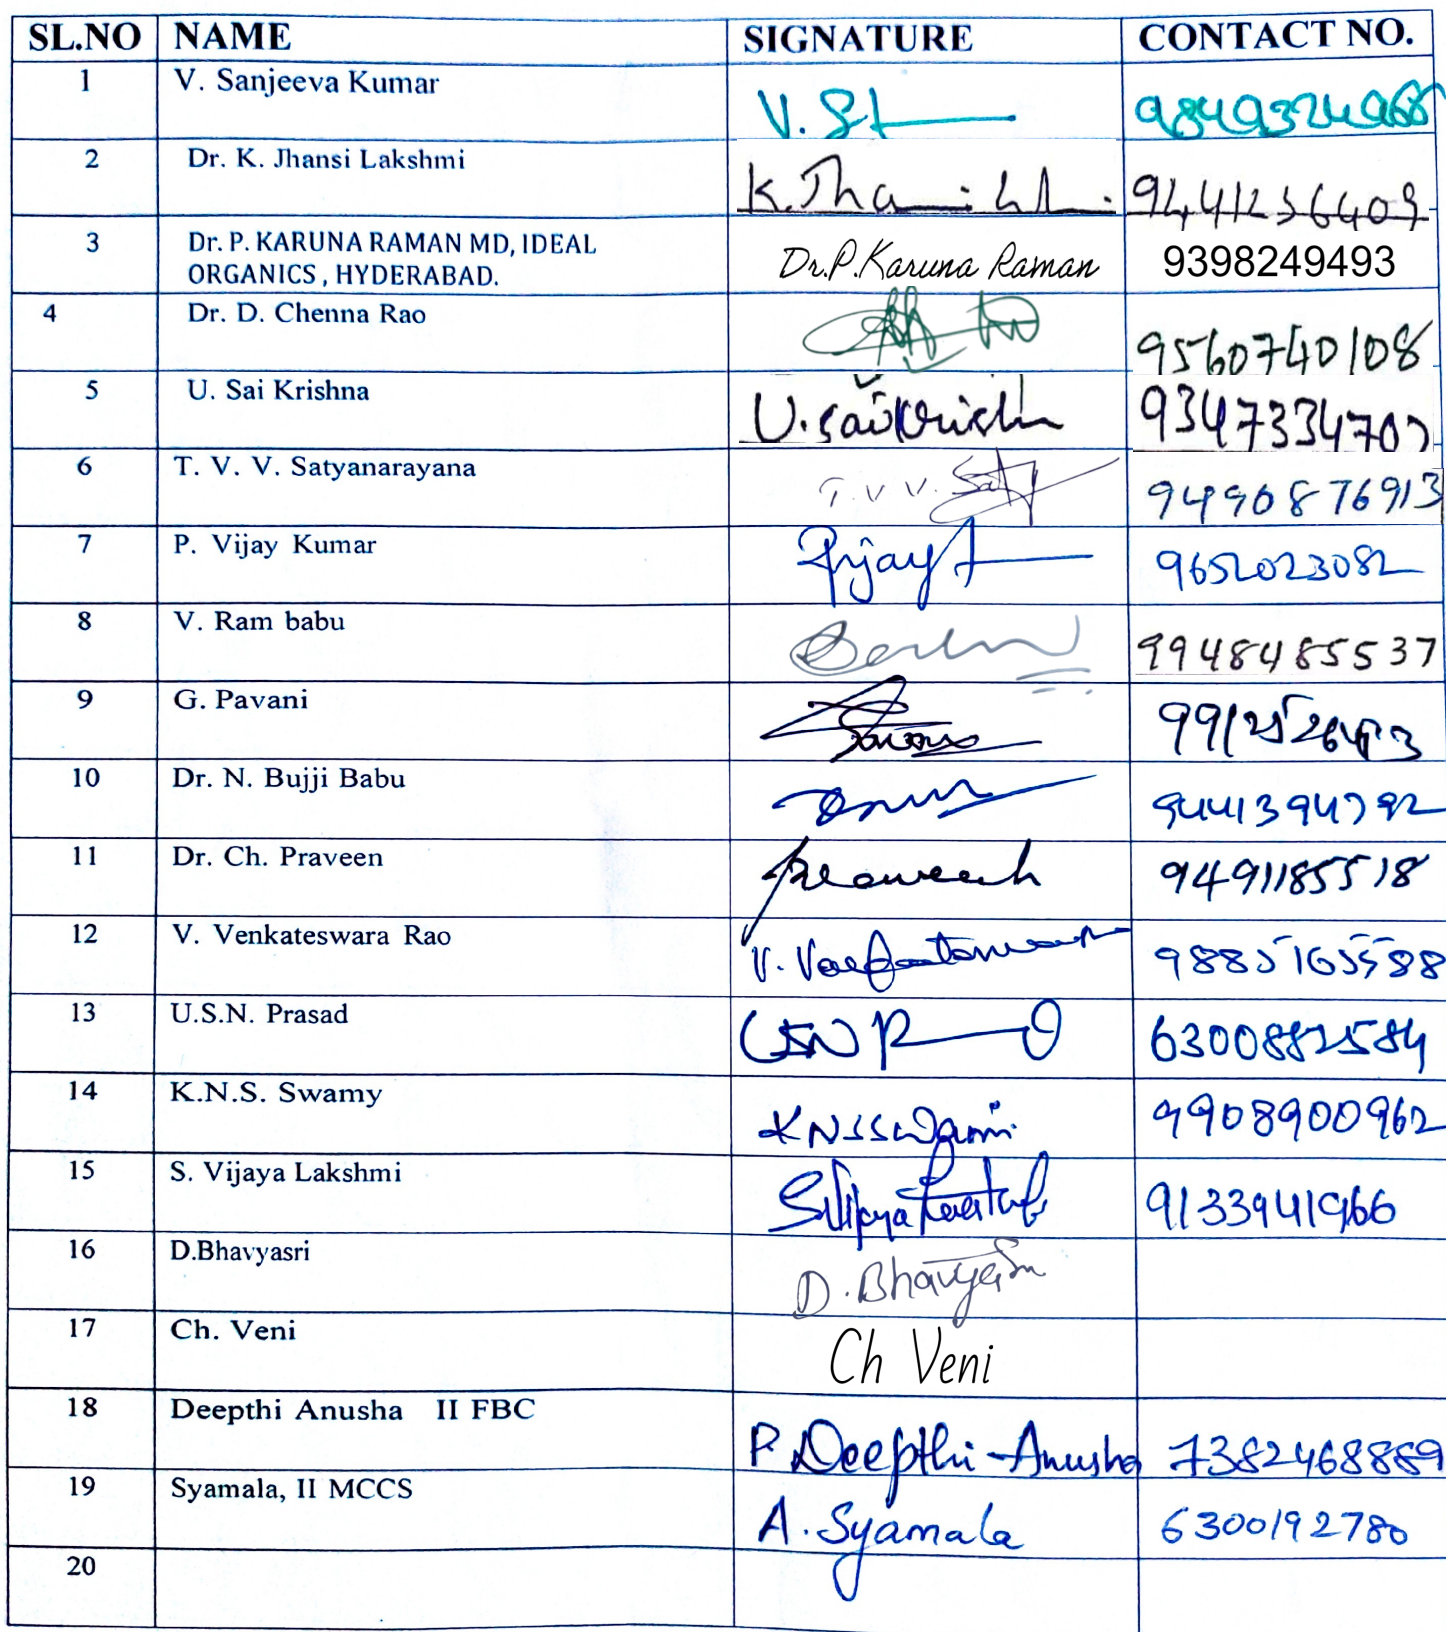 SL.NO NAME SIGNATURE CONTACT NO.
1 V. Sanjeeva Kumar V. S 9849324968
2 Dr. K. Jhansi Lakshmi K. Jhansi 9441236409
3 Dr. P. KARUNA RAMAN MD, IDEAL Dr.P.Karuna Raman 9398249493
ORGANICS , HYDERABAD.
4 Dr. D. Chenna Rao 9560740108
5 U. Sai Krishna U. Sai Krishna 9347334707
6 T. V. V. Satyanarayana T. V V. Saty 9490876913
7 P. Vijay Kumar PVijay 9652023082
8 V. Ram babu 9948485537
9 G. Pavani
10 Dr. N. Bujji Babu 9441394792
11 Dr. Ch. Praveen Praveench 9491185518
12 V. Venkateswara Rao V. Venkateswara 9885165588
13 U.S.N. Prasad USN P 6300882584
14 K.N.S. Swamy KNSSwami 9908900962
15 S. Vijaya Lakshmi S.Vijaya Laksh 9133941966
16 D.Bhavyasri D. Bhavyasri
17 Ch. Veni Ch Veni
18 Deepthi Anusha II FBC P. Deepthi-Anusha 7382468889
19 Syamala, II MCCS A. Syamala 6300192780
20